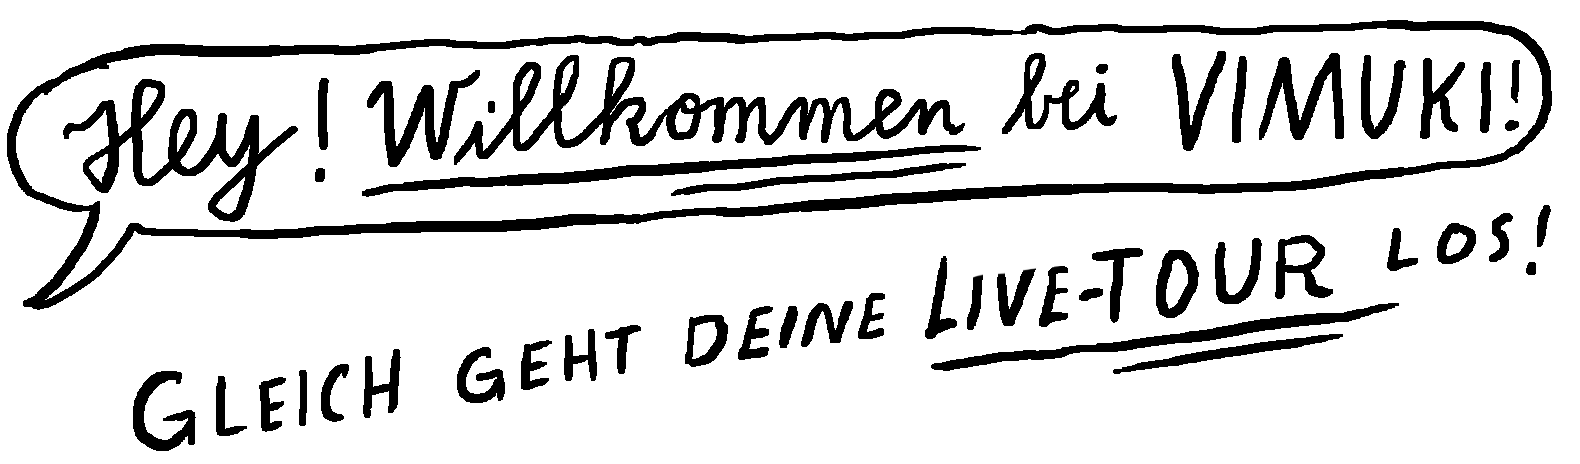 Hey! Willkommen bei VIMUKI!
GLEICH GEHT DEINE LIVE-TOUR LOS!